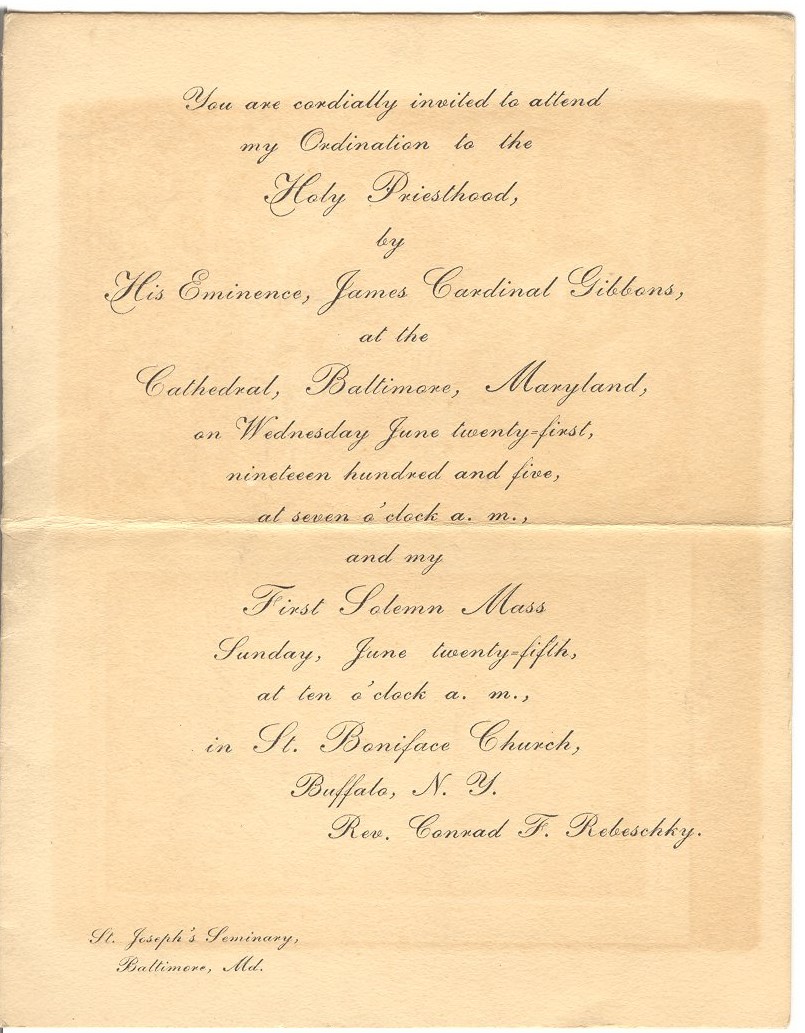 You are cordially invited to attend
my Ordination to the
Holy Priesthood,
by
His Eminence, James Cardinal Gibbons,
at the
Cathedral, Baltimore, Maryland,
on Wednesday June twenty=first,
nineteeen hundred and five,
at seven o'clock a. m.,
and my
First Solemn Mass
Sunday, June twenty=fifth,
at ten o'clock a. m.,
in St. Boniface Church,
Buffalo, N. Y.
Rev. Conrad F. Rebeschky.
St. Joseph's Seminary,
Baltimore, Md.